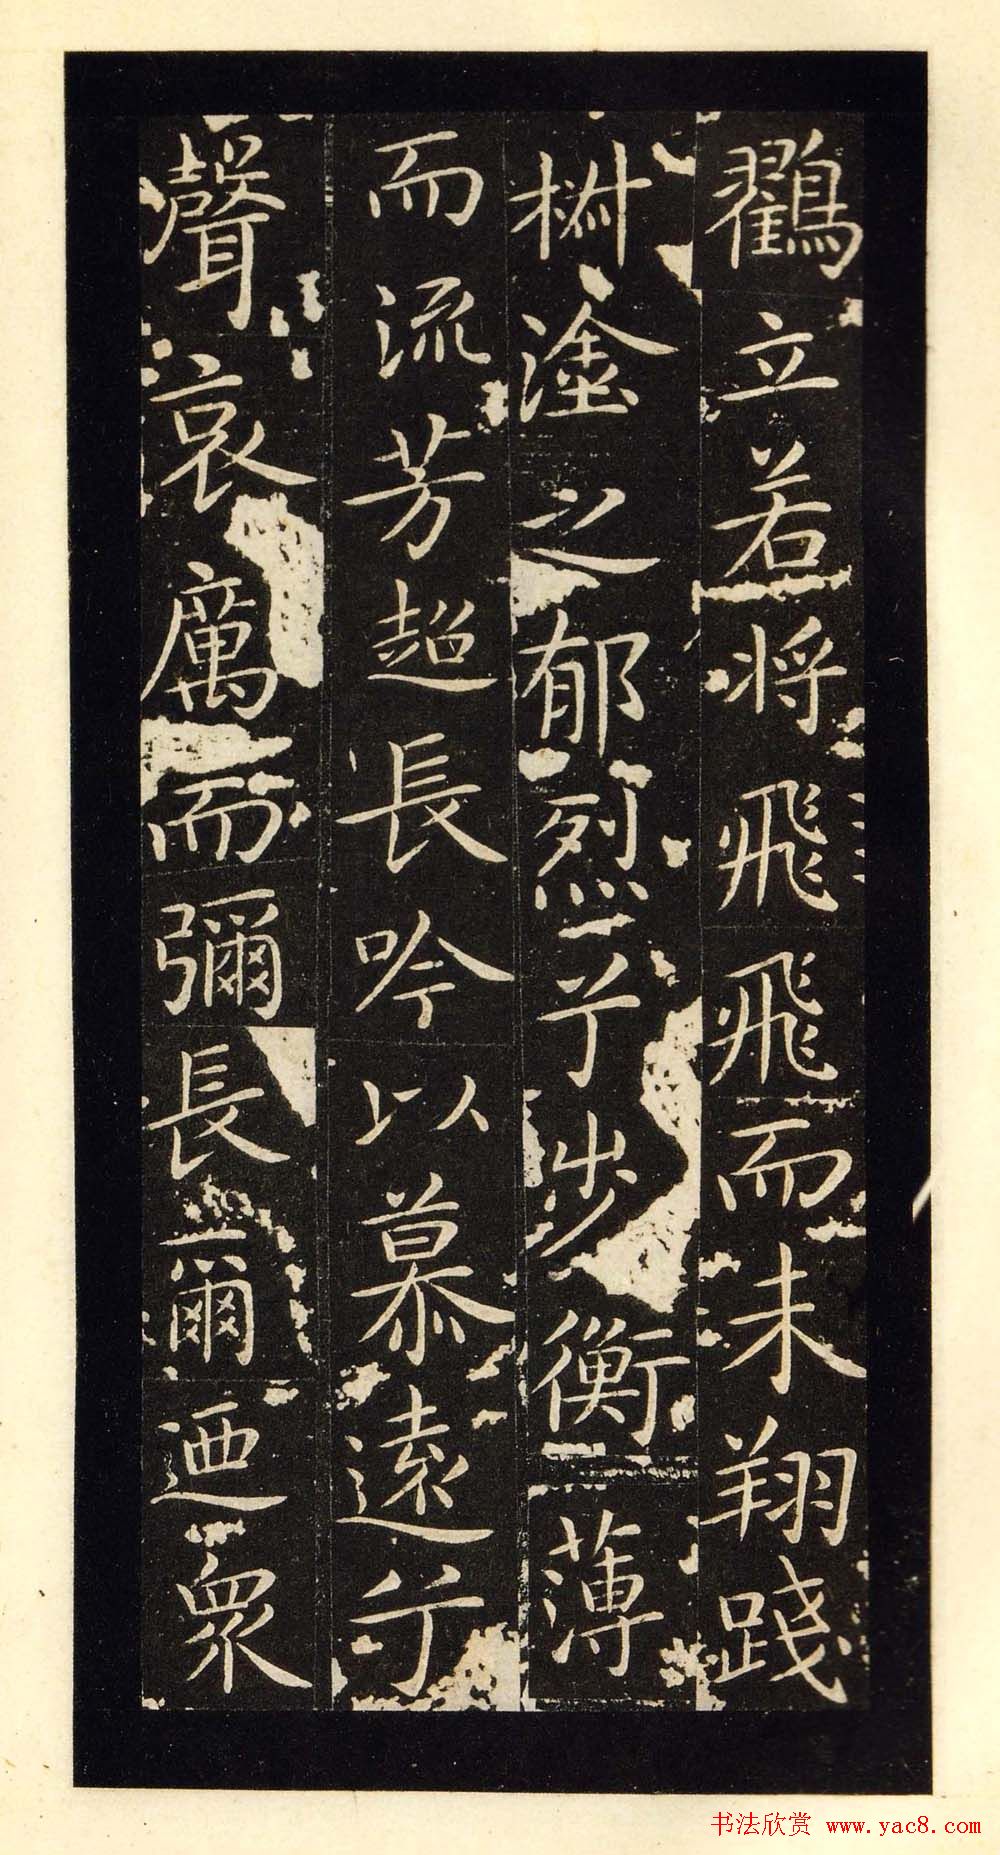 鶴立若將飛飛而未翔踐
椒塗之郁烈兮步衡薄
而流芳超長吟以慕遠兮
聲哀厲而彌長爾迺眾
书法欣赏 www.yac8.com